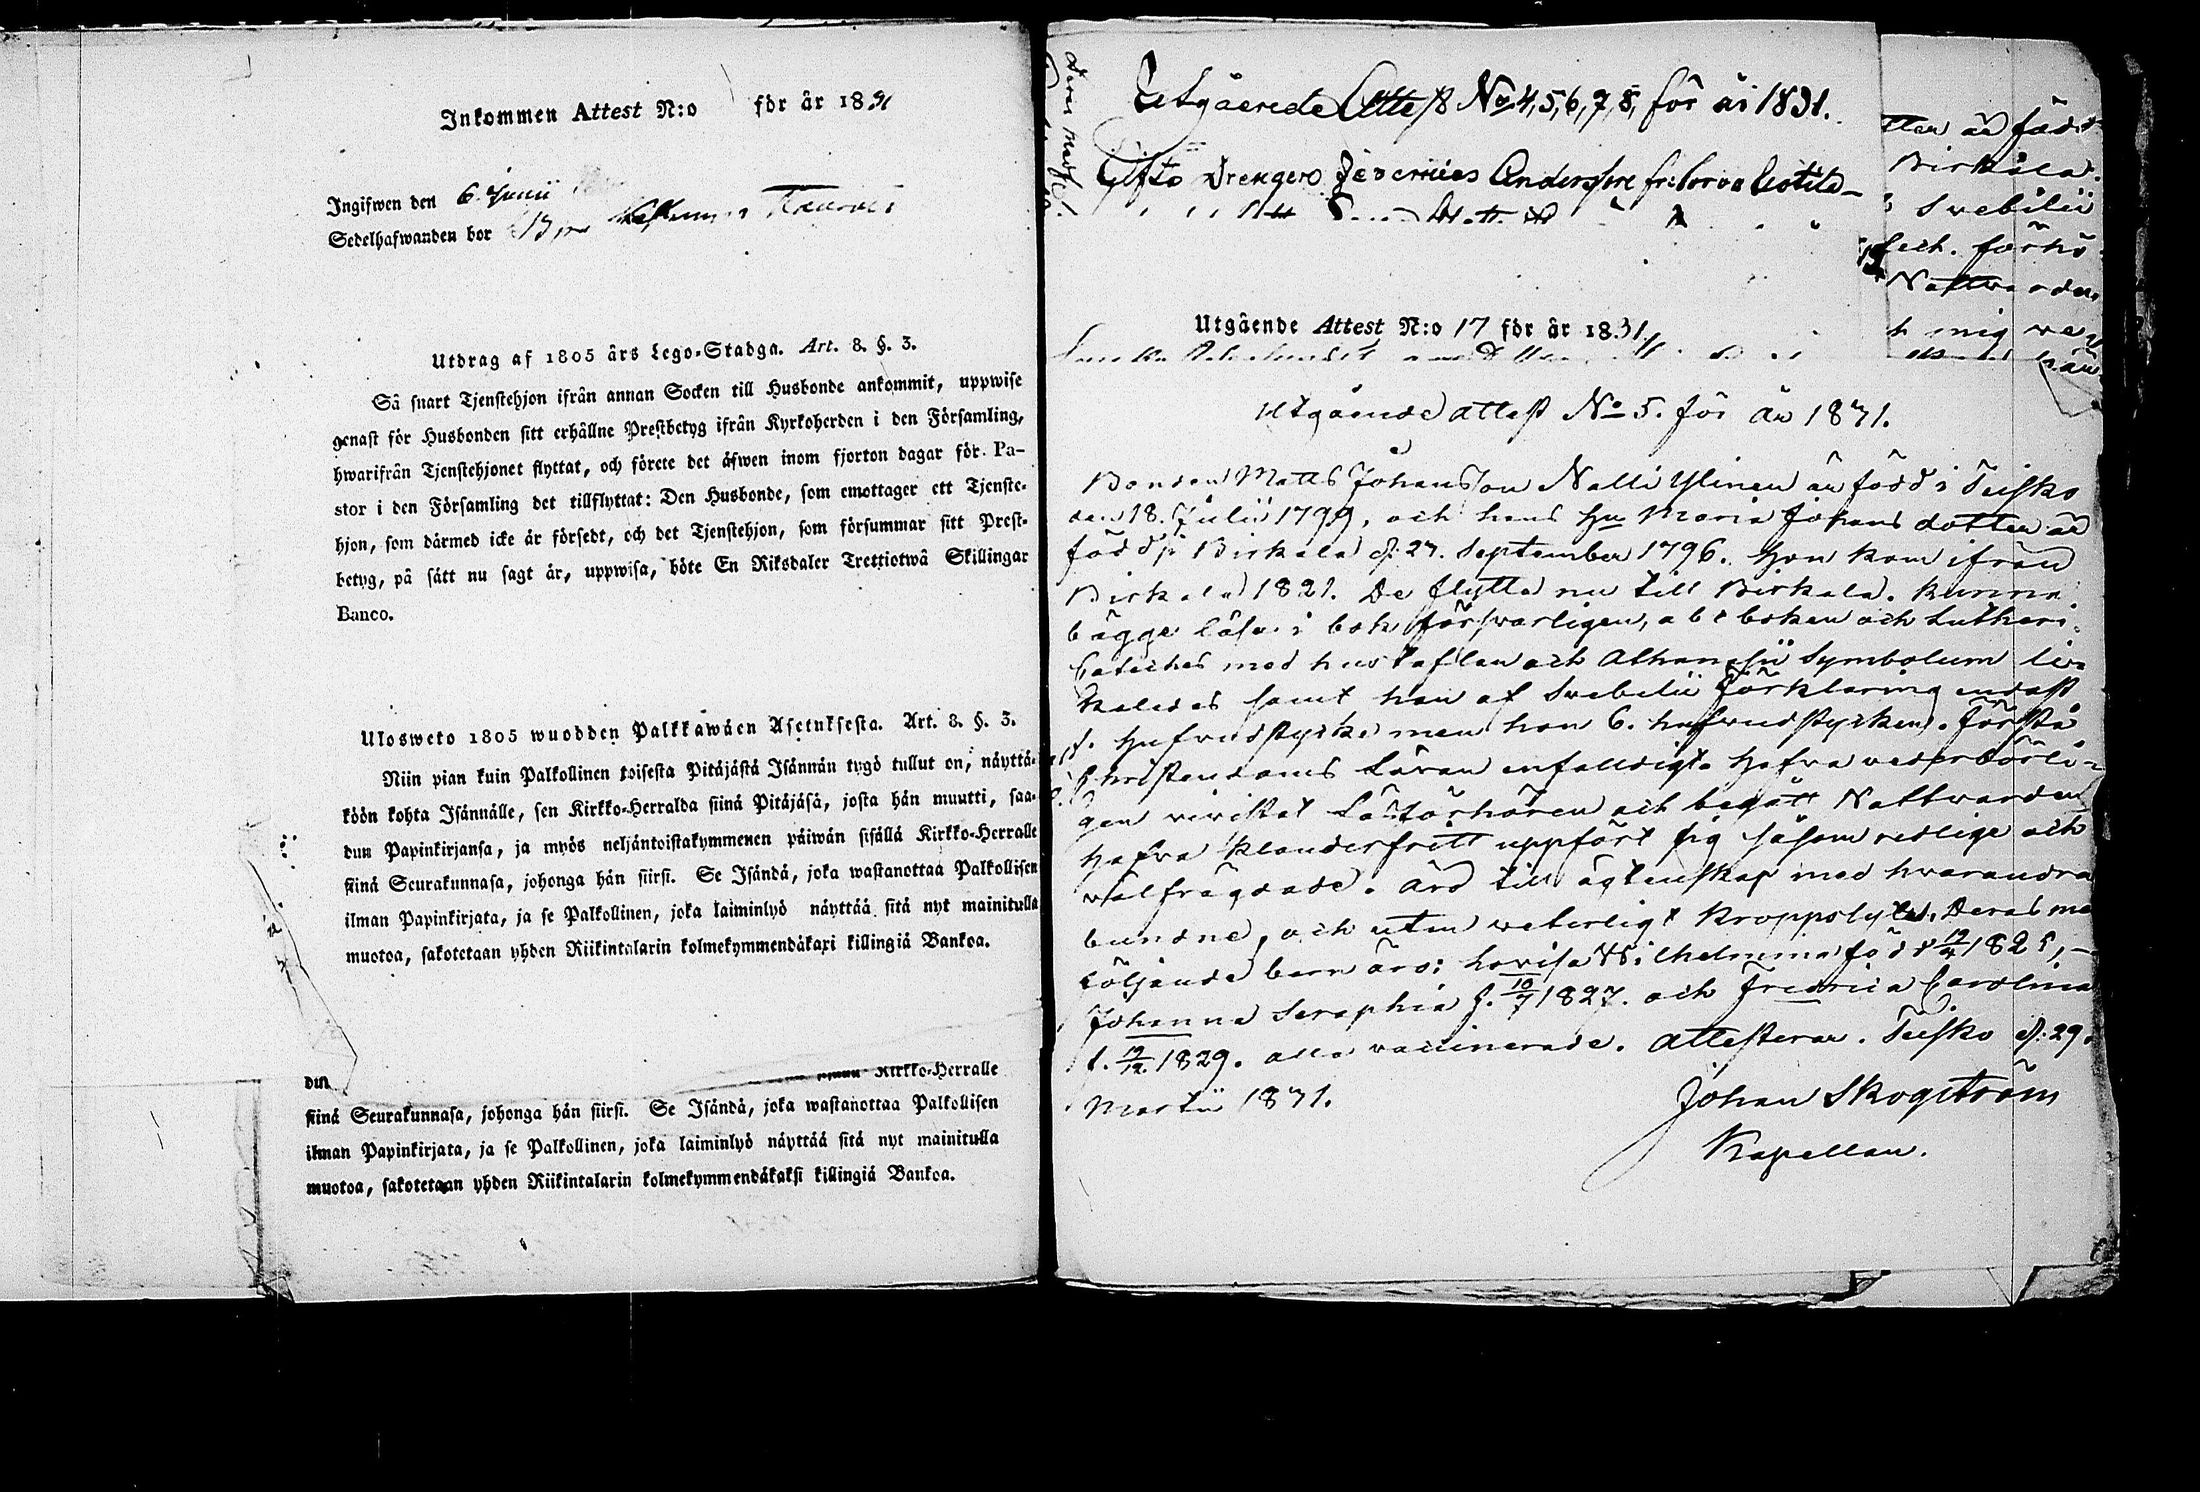 Inkommen Attest N:o för år 1831
Ingifwen den 6. Junii
Sedelhafwanden bor
Utdrag af 1805 års Lego-Stadga. Art. 8. §. 3.
Så snart Tjenstehjon ifrån annan Socken till Husbonde ankommit, uppwise
genast för Husbonden sitt erhållne Prestbetyg ifrån Kyrkoherden i den Församling,
hwarifrån Tjenstehjonet flyttat, och förete det äfwen inom fjorton dagar för Pa-
stor i den Församling det tillflyttat: Den Husbonde, som emottager ett Tjenste-
hjon, som därmed icke är försedt, och det Tjenstehjon, som försummar sitt Prest-
betyg, på sätt nu sagt är, uppwisa, böte En Riksdaler Trettiotwå Skillingar
Banco.
Ulosweto 1805 wuodden Palkkawäen Asetuksesta. Art. 8. §. 3.
Niin pian kuin Palkollinen toisesta Pitäjästä Isännän tygö tullut on, näyttä-
köön kohta Isännälle, sen Kirkko-Herralda siinä Pitäjäsä, josta hän muutti, saa-
dun Papinkirjansa, ja myös neljäntoistakymmenen päiwän sisällä Kirkko-Herralle
siinä Seurakunnasa, johonga hän siirsi. Se Isändä, joka wastanottaa Palkollisen
ilman Papinkirjata, ja se Palkollinen, joka laiminlyö näyttää sitä nyt mainitulla
muotoa, sakotetaan yhden Riikintalarin kolmekymmendäkaxi killingiä Bankoa.
dun Kirkko-Herralle
siinä Seurakunnasa, johonga hän siirsi. Se Isändä, joka wastanottaa Palkollisen
ilman Papinkirjata, ja se Palkollinen, joka laiminlyö näyttää sitä nyt mainitulla
muotoa, sakotetaan yhden Riikintalarin kolmekymmendäkaksi killingiä Bankoa.
Utgåerede Attest No 4, 5, 6, 7, 8, för år 1831.
Gifte Drengen Andersson
Utgående Attest N:o 17 för år 1831
Utgående attest No 5. för år 1831.
Bonden Matts Johansson Nalli Ylinen är född i Teisko
den 18. Julii 1799, och hans Hu Maria Johansdotter är
född i Birkala d: 27. September 1796. Hon kom ifrån
Birkala 1821. De flytta nu till Birkala. Kunna
bägge läsa i bok försvarligen, abc boken och Lutheri
Cateches med hustaflan och Athanasii Symbolum li-
kaledes samt han af Svebilii Förklaring endast
1. Hufvudstycke men hon 6. hufvudstycken. Förstå
Christendoms Läran enfalldigt. Hafva vederbörli-
gen bevistat Läsförhören och begått Nattvarden
Hafva klanderfritt uppfört sig såsom redlige och
välfrägdade. Äro till ägtenskap med hvarandra
bundne, och utan veterligt kroppslyte. Deras me
följande barn äro: Lovisa Wilhelmina född 12/4 1825, -
Johanna Seraphia f. 10/7 1827. och Fredrica Carolina
f. 12/12 1829. alla vaccinerade. Attesterar. Teisko d: 29.
Martii 1831.
Johan Skogström
Kapellan.
tter är född
Birkala.
Svebilii
förhö
Nattvarden
mig